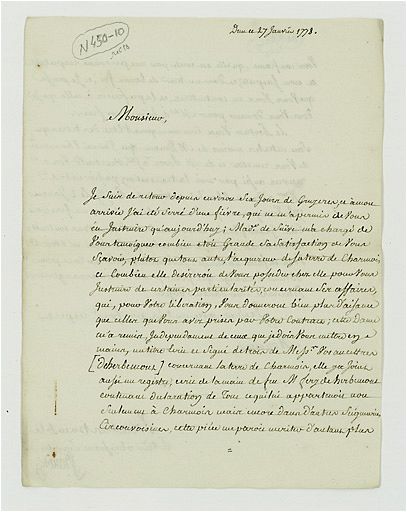 N 450-10
Dun ce 27 Janvier 1778.
Monsieur,
Je Suis de retour depuis environ Six Jours de Gruzeres, et a mon
arrivée J'ai été Serré d'une fievre, qui ne m'a permis de Vous
en Instruire qu'aujourd'huy; Mad.e de Suive m'a chargé de
Vous temoigner combien etoit Grande Sa Satisfaction de Vous
Sçavoir, plutot que tous autre, l'acquereur de la terre de Charmois,
et Combien elle desireroit de Vous posseder chez elle pour Vous
Instruire de certaines particularités, concernant Ses affaires
qui, pour Votre liberation, Vous donneront bien plus d'aisance
que celles que Vous avez prises par Votre Contract; cette dame
m'a remis, Independament de ceux que je dois Vous mettre en
mains, un titre Ecrit et Signé de trois de Mess.rs Vos ancestres
[Déherbemont] concernant la terre de Charmois, elle y a Joint
aussi un registre, ecrit de la main de feu M. d'herbemont
contenant declaration de Tout ce qui lui appartenoit non
Seulement à Charmois mais encore dans d'autres Seigneuries
Circonvoisines, cette piece me paroit meriter d'autant plus